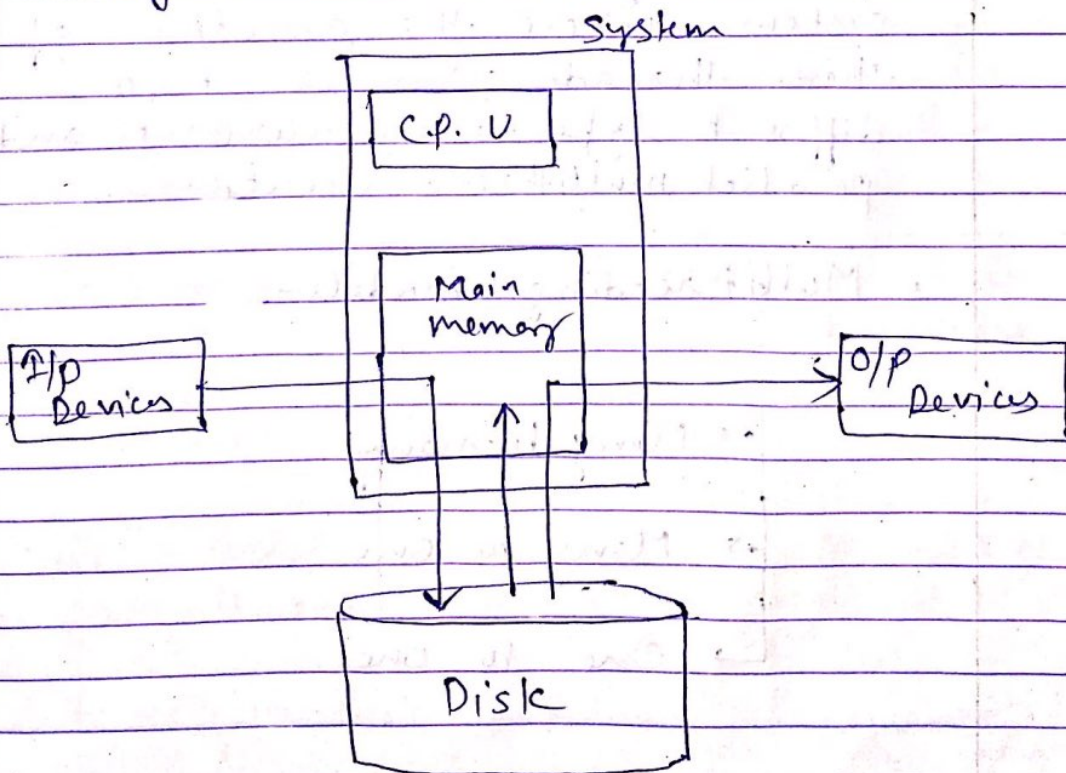 System
C.P.U
Main
memory
I/P
Devices
O/P
Devices
Disk